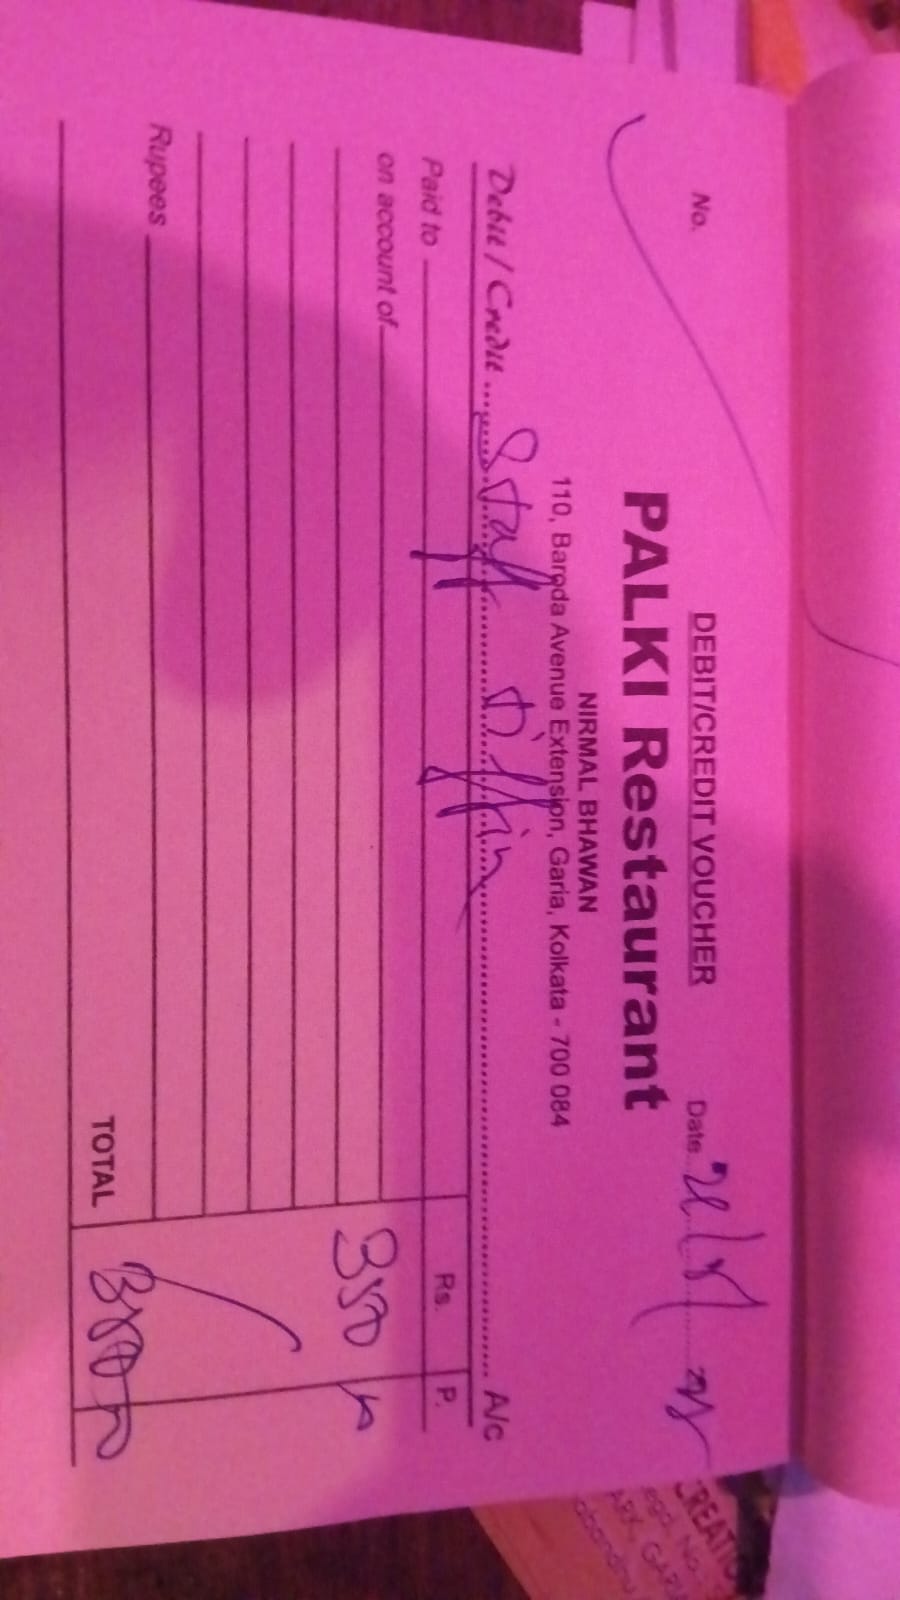 DEBIT/CREDIT VOUCHER
No.
Date
PALKI Restaurant
NIRMAL BHAWAN
110, Baroda Avenue Extension, Garia, Kolkata - 700 084
Debit / Credit Staff Tiffin A/c
Paid to Rs. P.
on account of
350
Rupees
TOTAL
CREATIO
egd. No.